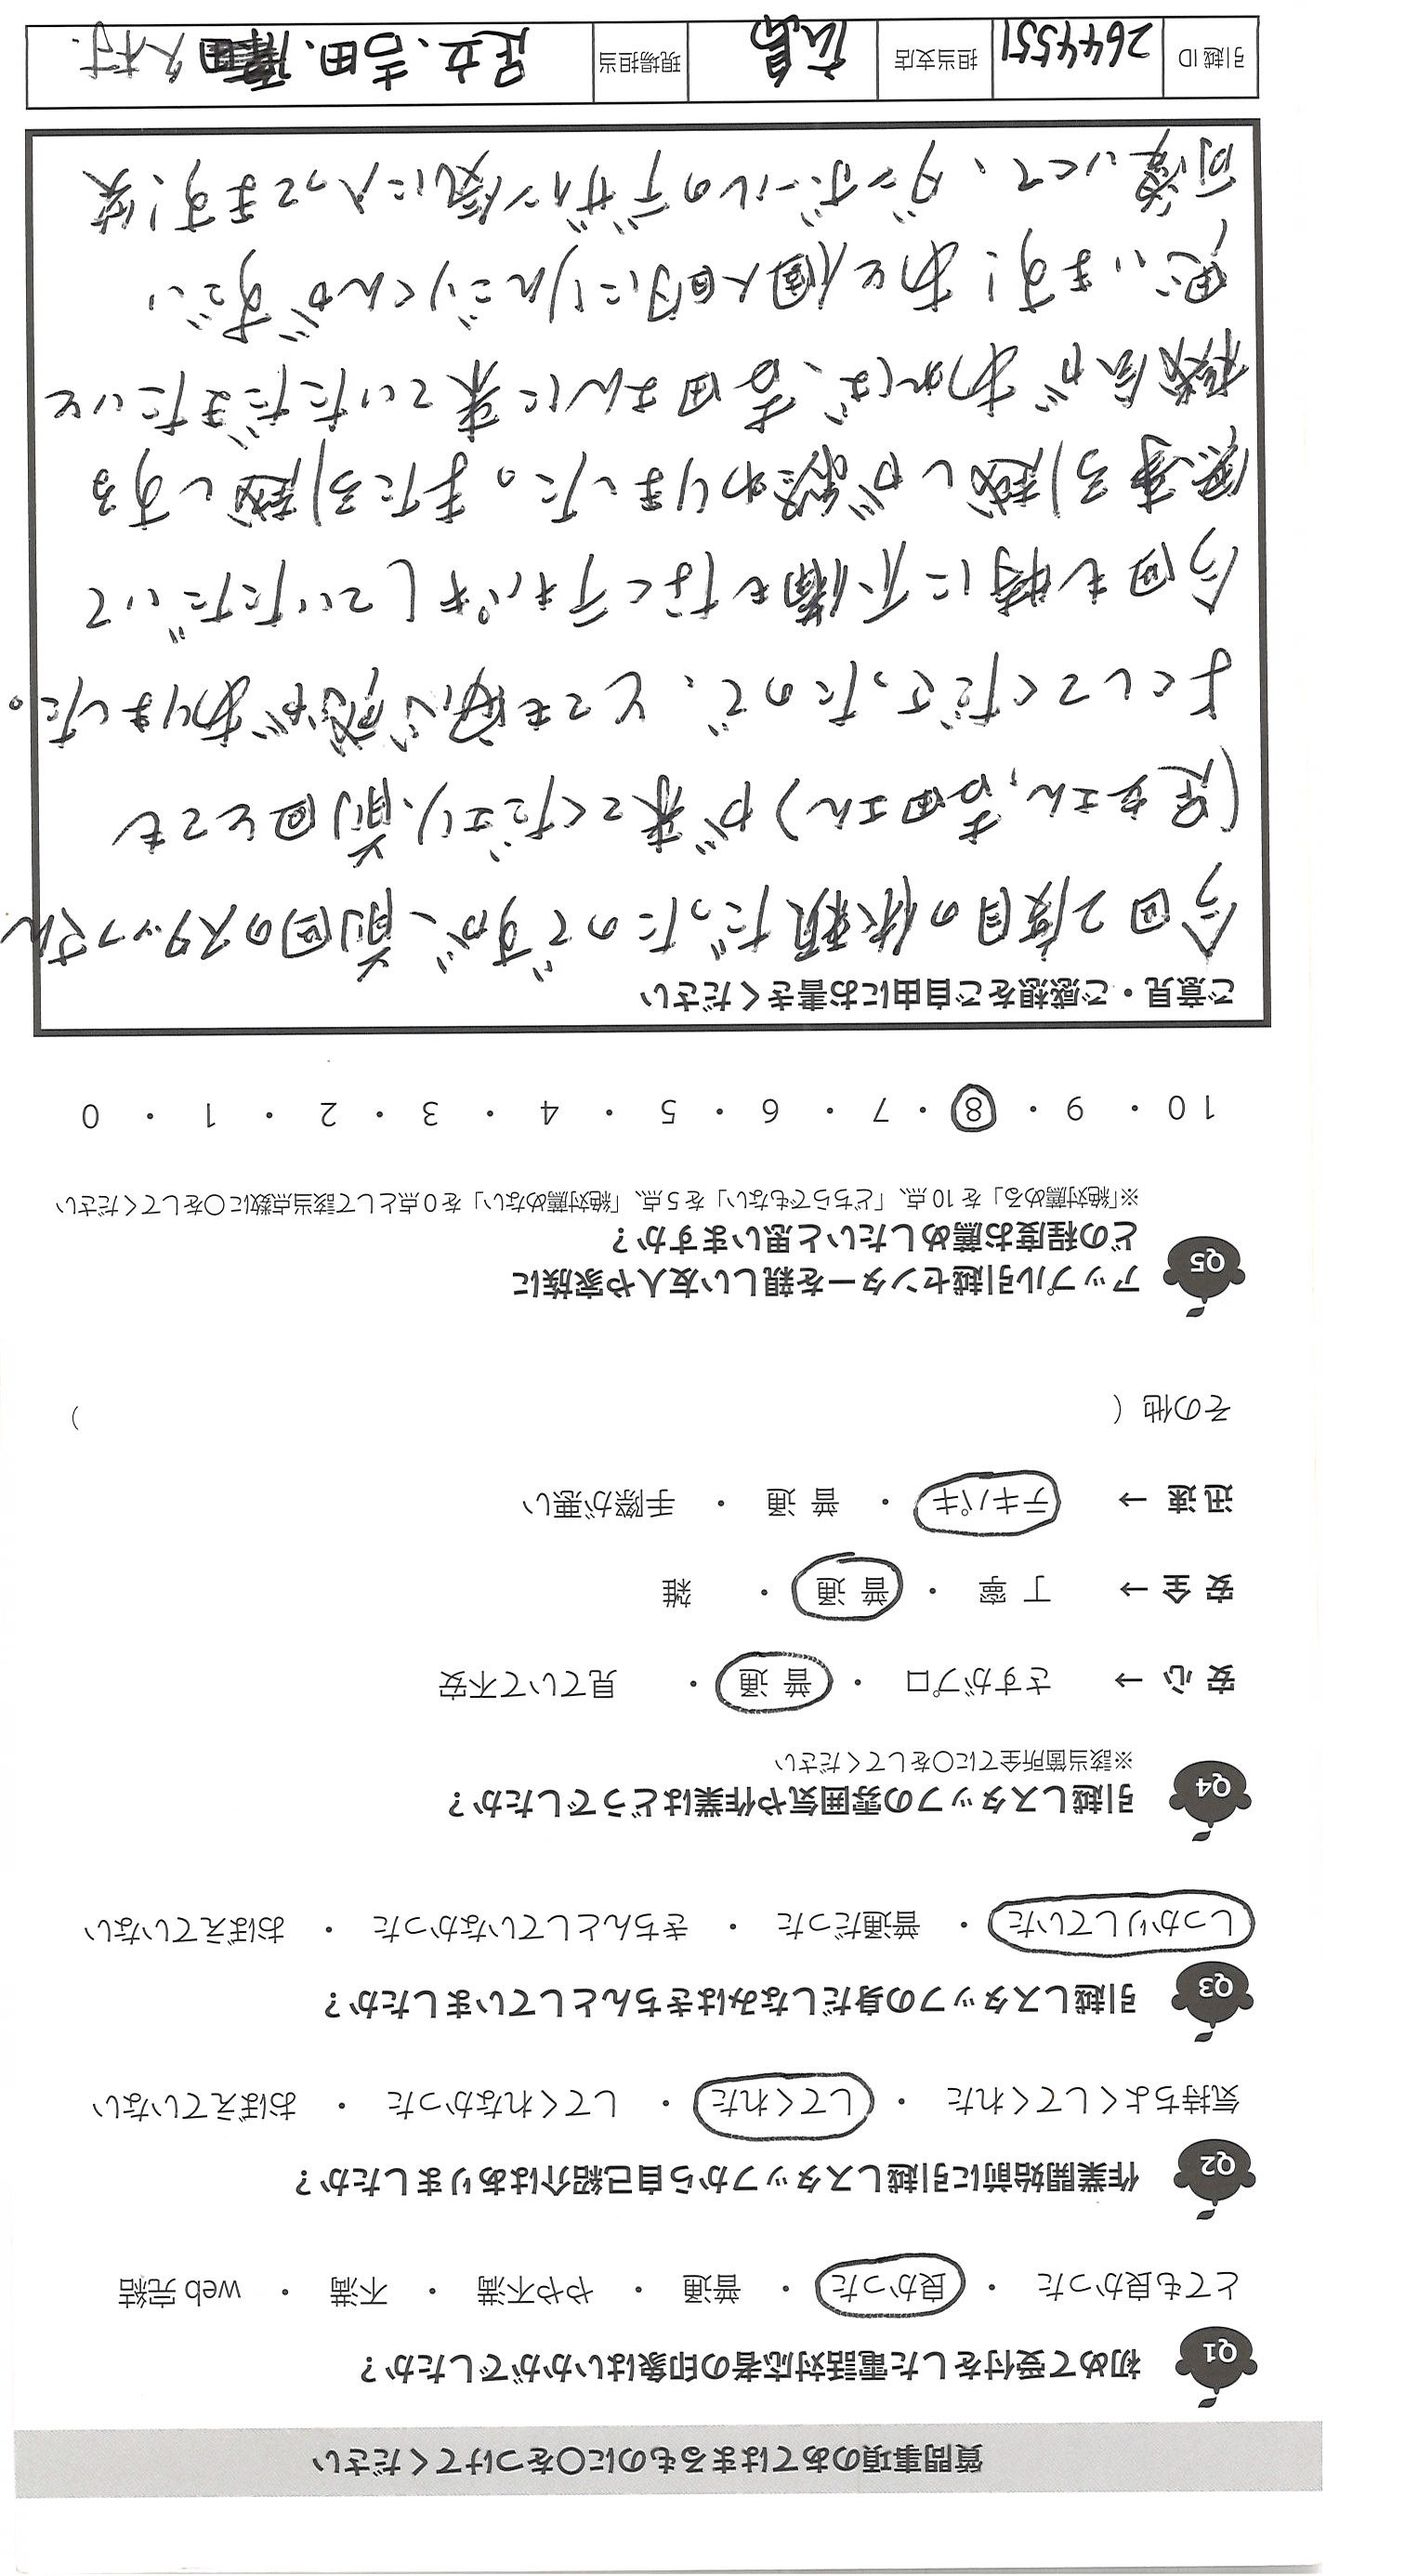 質問事項のあてはまるものに○をつけてください
Q1 初めて受付をした電話対応者の印象はいかがでしたか？
とても良かった ・ 良かった ・ 普通 ・ やや不満 ・ 不満 ・ web完結
Q2 作業開始前に引越しスタッフから自己紹介はありましたか？
気持ちよくしてくれた ・ してくれた ・ してくれなかった ・ おぼえていない
Q3 引越しスタッフの身だしなみはきちんとしていましたか？
しっかりしていた ・ 普通だった ・ きちんとしていなかった ・ おぼえていない
Q4 引越しスタッフの雰囲気や作業はどうでしたか？
※該当箇所全てに○をしてください
安心 → さすがプロ ・ 普通 ・ 見ていて不安
安全 → 丁寧 ・ 普通 ・ 雑
迅速 → テキパキ ・ 普通 ・ 手際が悪い
その他 （ ）
Q5 アップル引越センターを親しい友人や家族に
どの程度お薦めしたいと思いますか？
※「絶対薦める」を10点、「どちらでもない」を5点、「絶対薦めない」を0点として該当点数に○をしてください
10 ・ 9 ・ 8 ・ 7 ・ 6 ・ 5 ・ 4 ・ 3 ・ 2 ・ 1 ・ 0
ご意見・ご感想をご自由にお書きください
今回2度目の依頼だったのですが、前回のスタッフさん
(足立さん, 吉田さん)が来てくださり、前回とても
よくしてくださったので、とても安心感がありました。
今回も特に不備もなくテキパキしていただいて
無事引越しが終わりました。また引越しする
機会があれば、吉田さんに来ていただきたいと
思います！あと個人的にりんごりくんがすごい
可愛いくて、ダンボールのデザイン気に入ってます！笑
引越ID 2644551 担当支店 広島 現場担当 足立、吉田、久村